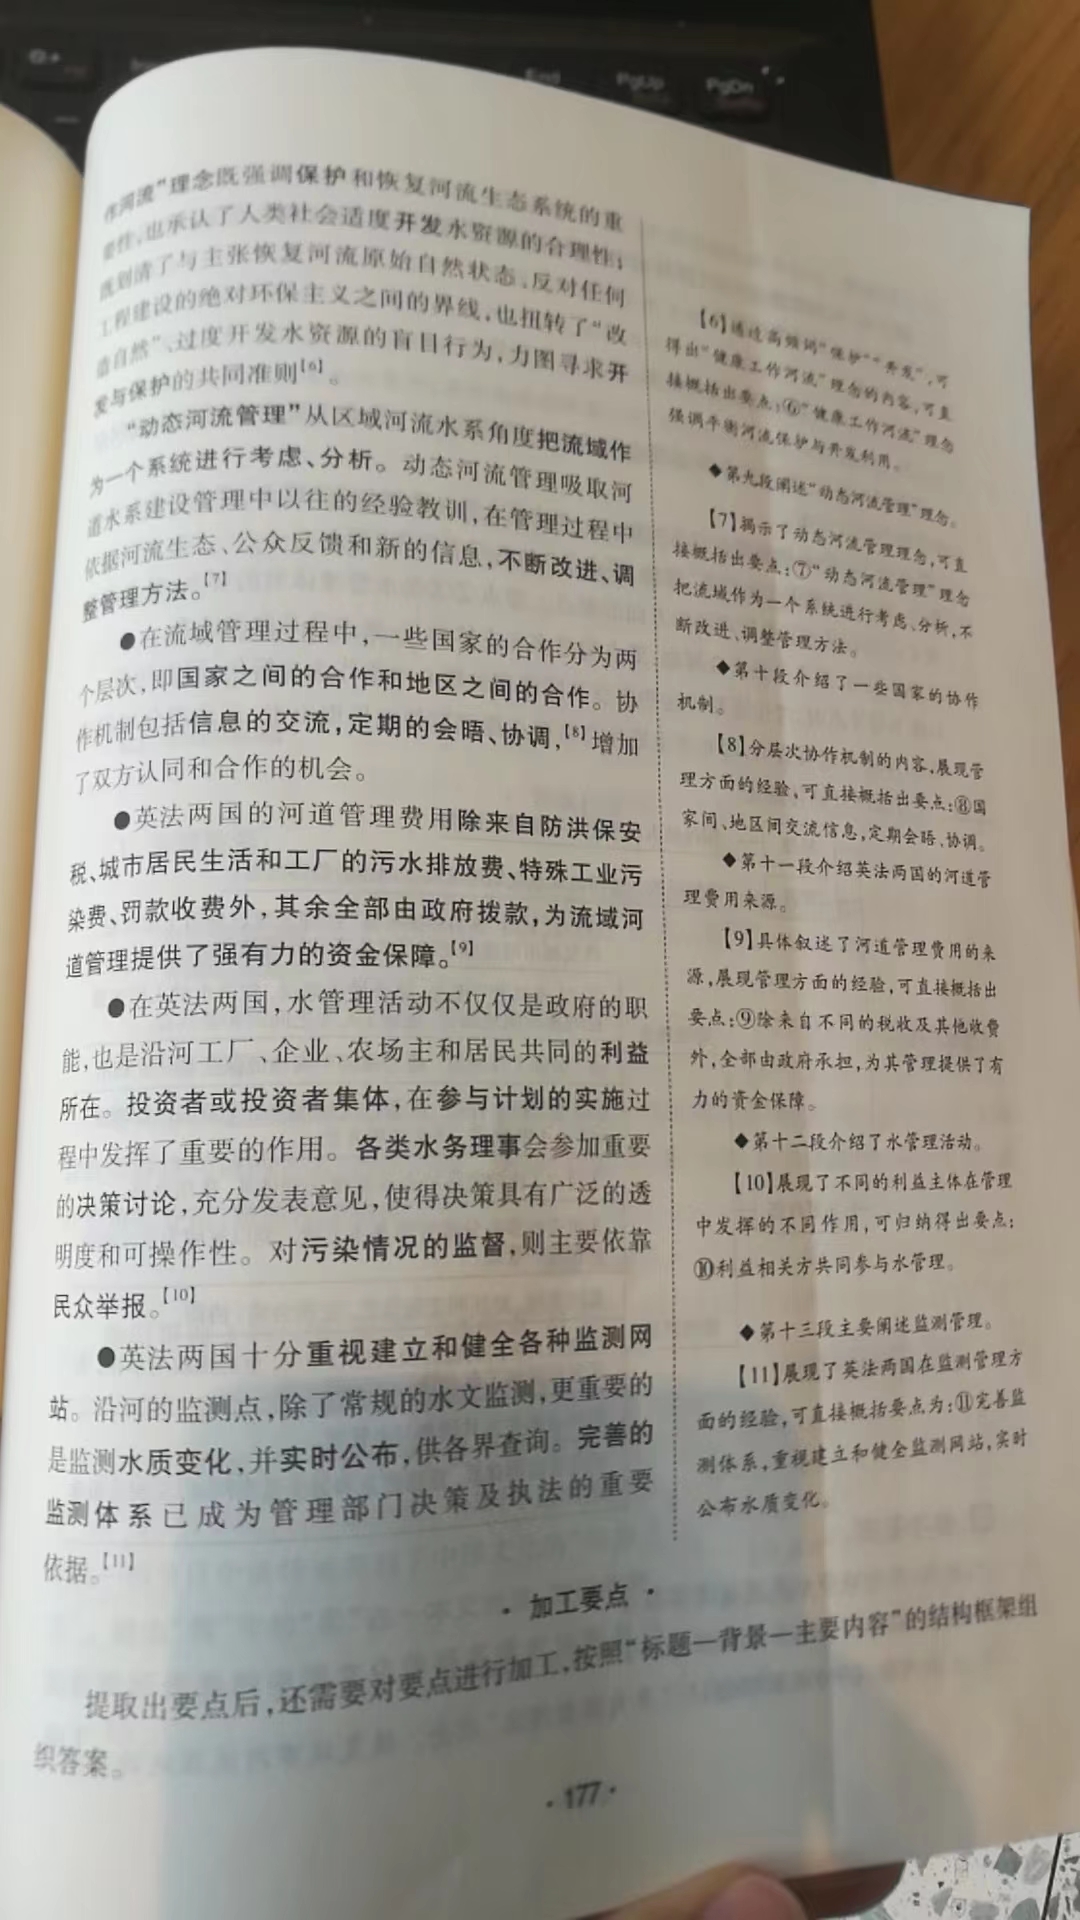 End
PgUp
PgDn
作河流”理念既强调保护和恢复河流生态系统的重
要性,也承认了人类社会适度开发水资源的合理性;
既划清了与主张恢复河流原始自然状态、反对任何
工程建设的绝对环保主义之间的界线,也扭转了“改
造自然”、过度开发水资源的盲目行为,力图寻求开
发与保护的共同准则【6】。
“动态河流管理”从区域河流水系角度把流域作
为一个系统进行考虑、分析。动态河流管理吸取河
道水系建设管理中以往的经验教训,在管理过程中
依据河流生态、公众反馈和新的信息,不断改进、调
整管理方法。【7】
●在流域管理过程中,一些国家的合作分为两
个层次,即国家之间的合作和地区之间的合作。协
作机制包括信息的交流,定期的会晤、协调,【8】增加
了双方认同和合作的机会。
●英法两国的河道管理费用除来自防洪保安
税、城市居民生活和工厂的污水排放费、特殊工业污
染费、罚款收费外,其余全部由政府拨款,为流域河
道管理提供了强有力的资金保障。【9】
●在英法两国,水管理活动不仅仅是政府的职
能,也是沿河工厂、企业、农场主和居民共同的利益
所在。投资者或投资者集体,在参与计划的实施过
程中发挥了重要的作用。各类水务理事会参加重要
的决策讨论,充分发表意见,使得决策具有广泛的透
明度和可操作性。对污染情况的监督,则主要依靠
民众举报。【10】
●英法两国十分重视建立和健全各种监测网
站。沿河的监测点,除了常规的水文监测,更重要的
是监测水质变化,并实时公布,供各界查询。完善的
监测体系已成为管理部门决策及执法的重要
依据。【11】
【6】通过高频词“保护”“开发”,可
得出“健康工作河流”理念的内容,可直
接概括出要点:⑥“健康工作河流”理念
强调平衡河流保护与开发利用。
◆第九段阐述“动态河流管理”理念。
【7】揭示了动态河流管理理念,可直
接概括出要点:⑦“动态河流管理”理念
把流域作为一个系统进行考虑、分析,不
断改进、调整管理方法。
◆第十段介绍了一些国家的协作
机制。
【8】分层次协作机制的内容,展现管
理方面的经验,可直接概括出要点:⑧国
家间、地区间交流信息,定期会晤、协调。
◆第十一段介绍英法两国的河道管
理费用来源。
【9】具体叙述了河道管理费用的来
源,展现管理方面的经验,可直接概括出
要点:⑨除来自不同的税收及其他收费
外,全部由政府承担,为其管理提供了有
力的资金保障。
◆第十二段介绍了水管理活动。
【10】展现了不同的利益主体在管理
中发挥的不同作用,可归纳得出要点:
⑩利益相关方共同参与水管理。
◆第十三段主要阐述监测管理。
【11】展现了英法两国在监测管理方
面的经验,可直接概括要点为:⑪完善监
测体系,重视建立和健全监测网站,实时
公布水质变化。
·加工要点·
提取出要点后,还需要对要点进行加工,按照“标题—背景—主要内容”的结构框架组
织答案。
·177·